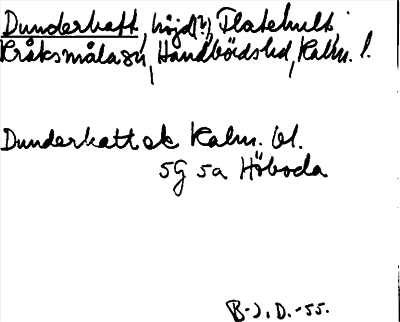 Dunderkatt, höjd(?), Flatehult i
Kråksmåla sn, Handbörds hd, Kalm. l.
Dunderkatt ek Kalm. bl.
5G 5a Höboda
B-J, D.-55.